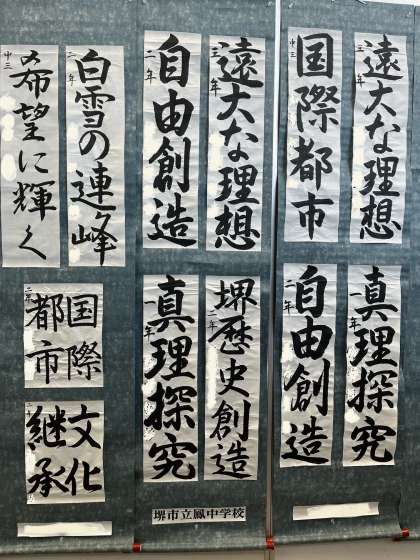 遠大な理想
三年
国際都市
中三
真理探究
一年
自由創造
二年
遠大な理想
三年
自由創造
二年
堺歴史創造
二年
真理探究
一年
堺市立鳳中学校
白雪の連峰
希望に輝く
中三
国際
都市
文化
継承